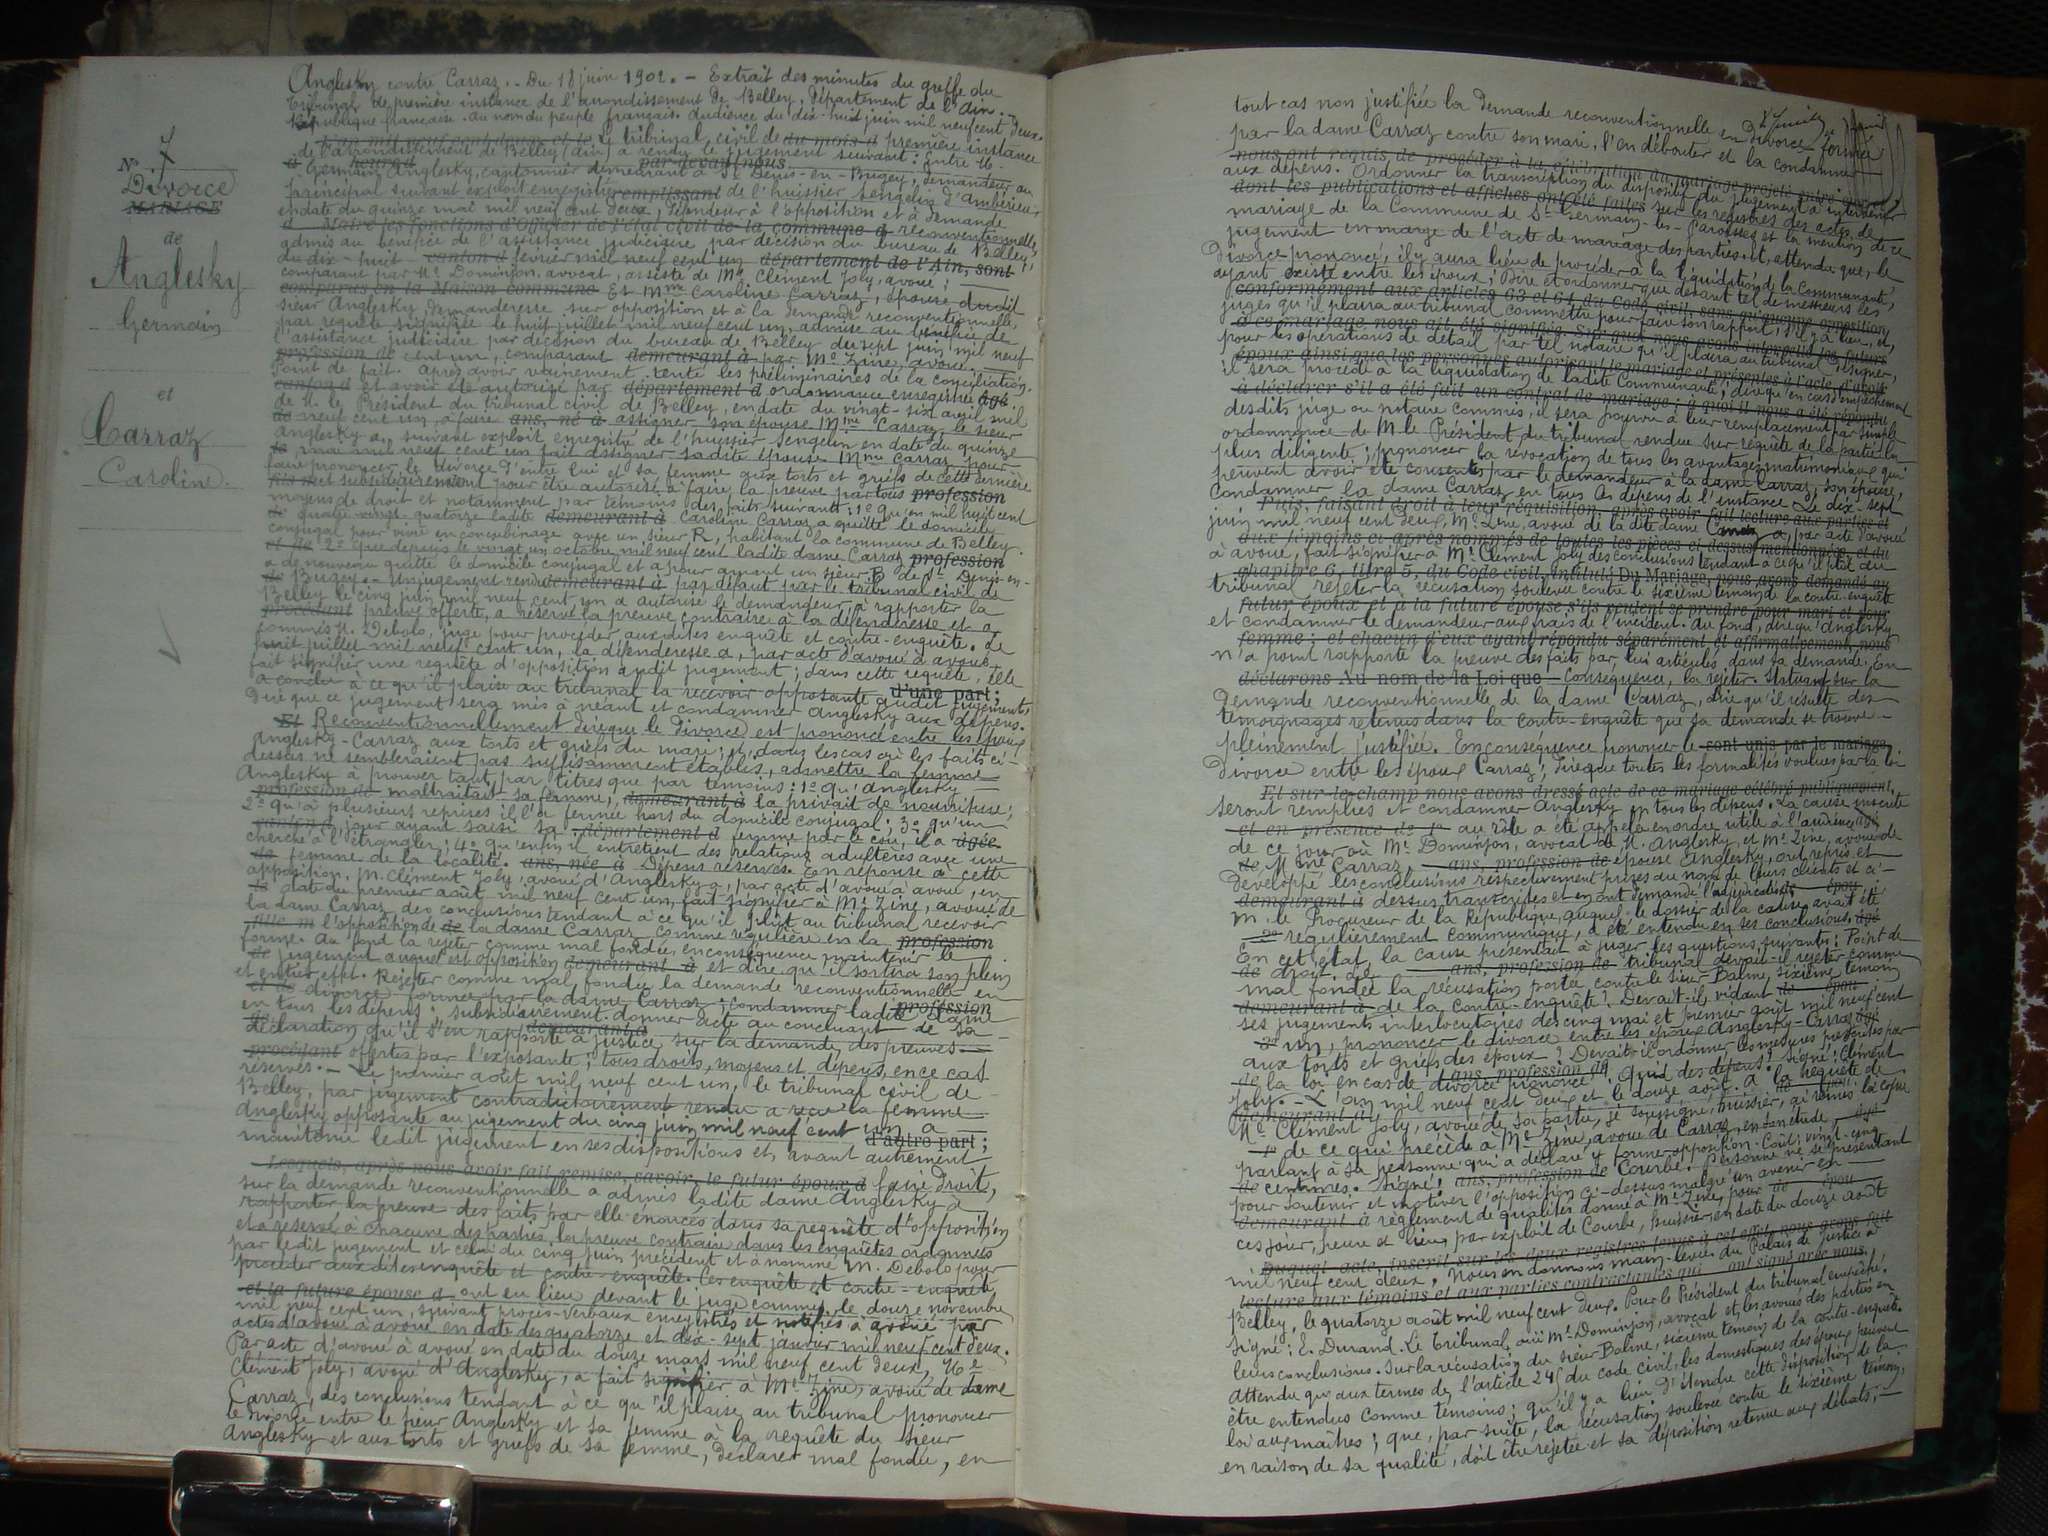 N° 7
Divorce
MARIAGE
de
Anglesky
Germain
et
Carraz
Caroline.
Anglesky contre Carraz.. Du 18 juin 1902. - Extrait des minutes du greffe du
tribunal de première instance de l'arrondissement de Belley, département de l'Ain.
République française. Au nom du peuple français. Audience du dix-huit juin mil neuf cent deux
L'an mil neuf cent deux et le le tribunal civil de du mois d première instance
de l'arrondissement de Belley (Ain) a rendu le jugement suivant: Entre M.
à heure d par devant nous
Germain Anglesky, cantonnier demeurant à St Denis-en-Bugey, demandeur au
principal suivant exploit enregistré remplissant de l'huissier Sengelin d'Ambérieu,
en date du quinze mai mil neuf cent deux, défendeur à l'opposition et à demande
d Maire les fonctions d'Officier de l'état civil de la commune d reconventionnelle,
admis au bénéfice de l'assistance judiciaire par décision du bureau de Belley,
du dix-huit canton d février mil neuf cent un, département de l'Ain, sont
comparant par Me Dominjon, avocat, assisté de Me Clément Joly, avoué;
comparus en la Maison commune Et Mme Caroline Carraz, épouse dudit
sieur Anglesky, demanderesse sur opposition et à la demande reconventionnelle,
par requête signifiée le huit juillet mil neuf cent un, admise au bénéfice de
l'assistance judiciaire par décision du bureau de Belley du sept juin mil neuf
profession de cent un, comparant demeurant à par Me Zine, avoué.
Point de fait. Après avoir vainement tenté les préliminaires de la conciliation,
canton d et avoir été autorisé par département d ordonnance enregistrée âgé
de M. le Président du tribunal civil de Belley, en date du vingt-six avril mil
de neuf cent un, à faire ans, né à assigner son épouse Mme Carraz, le sieur
Anglesky a, suivant exploit enregistré de l'huissier Sengelin en date du quinze
de mai mil neuf cent un fait assigner sadite épouse Mme Carraz pour
faire prononcer le divorce d'entre lui et sa femme aux torts et griefs de cette dernière
fils m et subsidiairement pour être autorisé à faire la preuve par tous profession
moyens de droit et notamment par témoins des faits suivants: 1° qu'en mil huit cent
de quatre vingt quatorze ladite demeurant à Caroline Carraz a quitté le domicile
conjugal pour vivre en concubinage avec un sieur R, habitant la commune de Belley.
et de 2° Que depuis le vingt un octobre mil neuf cent ladite dame Carraz profession
a de nouveau quitté le domicile conjugal et a pour amant un sieur B de St Denis-en-
de Bugey. - Un jugement rendu demeurant à par défaut par le tribunal civil de
Belley le cinq juin mil neuf cent un a autorisé le demandeur à rapporter la
procédant preuve offerte, a réservé la preuve contraire à la défenderesse et a
commis M. Debolo, juge pour procéder auxdites enquête et contre-enquête. Le
huit juillet mil neuf cent un, la défenderesse a, par acte d'avoué à avoué,
fait signifier une requête d'opposition audit jugement; dans cette requête, elle
a conclu à ce qu'il plaise au tribunal la recevoir opposante d'une part; audit jugement;
Dire que ce jugement sera mis à néant et condamner Anglesky aux dépens.
Et Reconventionnellement dire que le divorce est prononcé entre les époux
Anglesky-Carraz aux torts et griefs du mari; et, dans les cas où les faits ci-
dessus ne sembleraient pas suffisamment établis, admettre la femme
Anglesky à prouver tant par titres que par témoins: 1° Qu'Anglesky
profession de maltraitait sa femme, demeurant à la privait de nourriture;
2° qu'à plusieurs reprises il l'a fermée hors du domicile conjugal; 3° qu'un
canton d jour ayant saisi sa département d femme par le cou, il a âgée
cherché à l'étrangler; 4° qu'enfin il entretient des relations adultères avec une
de femme de la localité. ans, née à Dépens réservés. En réponse à cette
opposition, M. Clément Joly, avoué d'Anglesky a, par acte d'avoué à avoué, en
de date du premier août mil neuf cent un, fait signifier à Me Zine, avoué de
la dame Carraz, des conclusions tendant à ce qu'il plût au tribunal recevoir
fille m l'opposition de de la dame Carraz comme régulière en la profession
forme. Au fond la rejeter comme mal fondée, en conséquence maintenir le
de jugement auquel est opposition demeurant à et dire qu'il sortira son plein
et entier effet. Rejeter comme mal fondée la demande reconventionnelle en
et de divorce formée par la dame Carraz; condamner ladite dame profession
en tous les dépens; subsidiairement donner acte au concluant de sa
déclaration qu'il s'en rapporte demeurant à à justice sur la demande des preuves
procédant offertes par l'exposante; tous droits, moyens et dépens, en ce cas
réservés. - Le premier août mil neuf cent un, le tribunal civil de
Belley, par jugement contradictoirement rendu a reçu la femme
Anglesky opposante au jugement du cinq juin mil neuf cent un a
maintenu ledit jugement en ses dispositions et, avant autrement d'autre part;
Lesquels, après nous avoir fait remise, savoir, le futur époux, d faire droit,
sur la demande reconventionnelle a admis ladite dame Anglesky à
rapporter la preuve des faits par elle énoncés dans sa requête d'opposition
et a réservé à chacune des parties la preuve contraire dans les enquêtes ordonnées
par ledit jugement et celui du cinq juin précédent et a nommé M. Debolo pour
procéder auxdites enquête et contre-enquête. Ces enquête et contre-enquête
et la future épouse d ont eu lieu devant le juge commis, le douze novembre
mil neuf cent un, suivant procès-verbaux enregistrés et notifiés à avoué par
actes d'avoué à avoué en date des quatorze et dix-sept janvier mil neuf cent deux.
Par acte d'avoué à avoué en date du douze mars mil neuf cent deux, Me
Clément Joly, avoué d'Anglesky, a fait signifier à Me Zine, avoué de dame
Carraz, des conclusions tendant à ce qu'il plaise au tribunal prononcer
le divorce entre le sieur Anglesky et sa femme à la requête du sieur
Anglesky et aux torts et griefs de sa femme, déclarer mal fondée, en
tout cas non justifiée la demande reconventionnelle en divorce formée
par la dame Carraz contre son mari, l'en débouter et la condamner
nous ont requis de procéder à la célébration du mariage projeté entre eux et
aux dépens. Ordonner la transcription du dispositif du jugement à intervenir
dont les publications et affiches ont été faites sur les registres des actes de
mariage de la Commune de St Germain-les-Paroisses et la mention de ce
jugement en marge de l'acte de mariage des parties et, attendu que, le
divorce prononcé, il y aura lieu de procéder à la liquidation de la Communauté,
ayant existé entre les époux; Dire et ordonner que devant tel de messieurs les
conformément aux articles 63 et 64 du Code civil, sans qu'aucune opposition
juges qu'il plaira au tribunal commettre pour faire son rapport, s'il y a lieu, et,
à ce mariage nous ait été signifiée. Sur quoi nous avons interpellé les futurs
pour les opérations de détail par tel notaire qu'il plaira au tribunal désigner,
époux ainsi que les personnes autorisant le mariage et présentes à l'acte, d'avoir
il sera procédé à la liquidation de ladite Communauté; dire qu'en cas d'empêchement
à déclarer s'il a été fait un contrat de mariage; à quoi il nous a été répondu
desdits juge ou notaire commis, il sera pourvu à leur remplacement par simple
ordonnance de M. le Président du tribunal rendue sur requête de la partie la
plus diligente; prononcer la révocation de tous les avantages matrimoniaux qui
peuvent avoir été consentis par le demandeur à la dame Carraz, son épouse,
condamner la dame Carraz en tous les dépens de l'instance. Le dix-sept
Puis, faisant droit à leur réquisition, après avoir fait lecture aux parties et
juin mil neuf cent deux, Me Zine, avoué de la dite dame Carraz a, par acte d'avoué
aux témoins ci après nommés de toutes les pièces ci dessus mentionnées, et du
à avoué, fait signifier à Me Clément Joly des conclusions tendant à ce qu'il plût au
chapitre 6, titre 5, du Code civil, intitulé Du Mariage, nous avons demandé au
tribunal rejeter la récusation soulevée contre le sixième témoin de la contre-enquête
futur époux et à la future épouse s'ils veulent se prendre pour mari et pour
et condamner le demandeur aux frais de l'incident. Au fond, dire qu'Anglesky
femme; et chacun d'eux ayant répondu séparément et affirmativement, nous
n'a point rapporté la preuve des faits par lui articulés dans sa demande. En
déclarons Au nom de la Loi que conséquence, la rejeter. Statuant sur la
demande reconventionnelle de la dame Carraz, dire qu'il résulte des
témoignages retenus dans la contre-enquête que sa demande se trouve
pleinement justifiée. En conséquence prononcer le sont unis par le mariage
divorce entre les époux Carraz; dire que toutes les formalités voulues par la loi
Et sur-le-champ nous avons dressé acte de ce mariage célébré publiquement,
seront remplies et condamner Anglesky en tous les dépens. La cause inscrite
et en présence de 1° au rôle a été appelée en ordre utile à l'audience
de ce jour où Me Dominjon, avocat de M. Anglesky, et Me Zine, avoué de
de Mme Carraz ans, profession de épouse Anglesky, ont repris et
développé les conclusions respectivement prises au nom de leurs clients et ci-
demeurant à dessus transcrites et en ont demandé l'adjudication. épou
M. le Procureur de la République, auquel le dossier de la cause avait été
2° régulièrement communiqué, a été entendu en ses conclusions. âgé
En cet état, la cause présentait à juger les questions suivantes: Point de
de droit. Le ans, profession de tribunal devait-il rejeter comme
mal fondée la récusation portée contre le sieur Balme, sixième témoin
demeurant à de la contre-enquête? Devait-il, vidant de épou
ses jugements interlocutoires des cinq mai et premier août mil neuf cent
3° un, prononcer le divorce entre les époux Anglesky-Carraz âgé
aux torts et griefs des époux? Devait-il ordonner les mesures prescrites par
de la loi en cas de divorce prononcé ans, profession de? Quid des dépens? Signé: Clément
Joly. - L'an mil neuf cent deux et le douze août. A la requête de
demeurant à
Me Clément Joly, avoué de sa partie, je soussigné, huissier, ai remis la copie
de ce qui précède à Me Zine, avoué de Carraz, en son étude,
parlant à sa personne qui a déclaré y former opposition. Coût: vingt-cinq
de centimes. Signé: ans, profession de Courbe. Personne ne se présentant
pour soutenir et motiver l'opposition ci-dessus malgré un avenir en
demeurant à règlement de qualités donné à Me Zine pour de épou
ces jour, heure et lieu, par exploit de Courbe, huissier, en date du douze août
Duquel acte, inscrit sur les deux registres tenus à cet effet, nous avons fait
mil neuf cent deux, Nous en donnons main-levée au Palais de Justice à
lecture aux témoins et aux parties contractantes qui ont signé avec nous.
Belley, le quatorze août mil neuf cent deux. Pour le Président du tribunal empêché.
Signé: E. Durand. Le tribunal, ouï Me Dominjon, avocat et, les avoués des parties en
leurs conclusions. Sur la récusation du sieur Balme, sixième témoin de la contre-enquête.
Attendu qu'aux termes de l'article 245 du code civil, les domestiques des époux peuvent
être entendus comme témoins; qu'il y a lieu d'étendre cette disposition de la
loi aux maîtres; que, par suite, la récusation soulevée contre le sixième témoin,
en raison de sa qualité, doit être rejetée et sa déposition retenue aux débats;